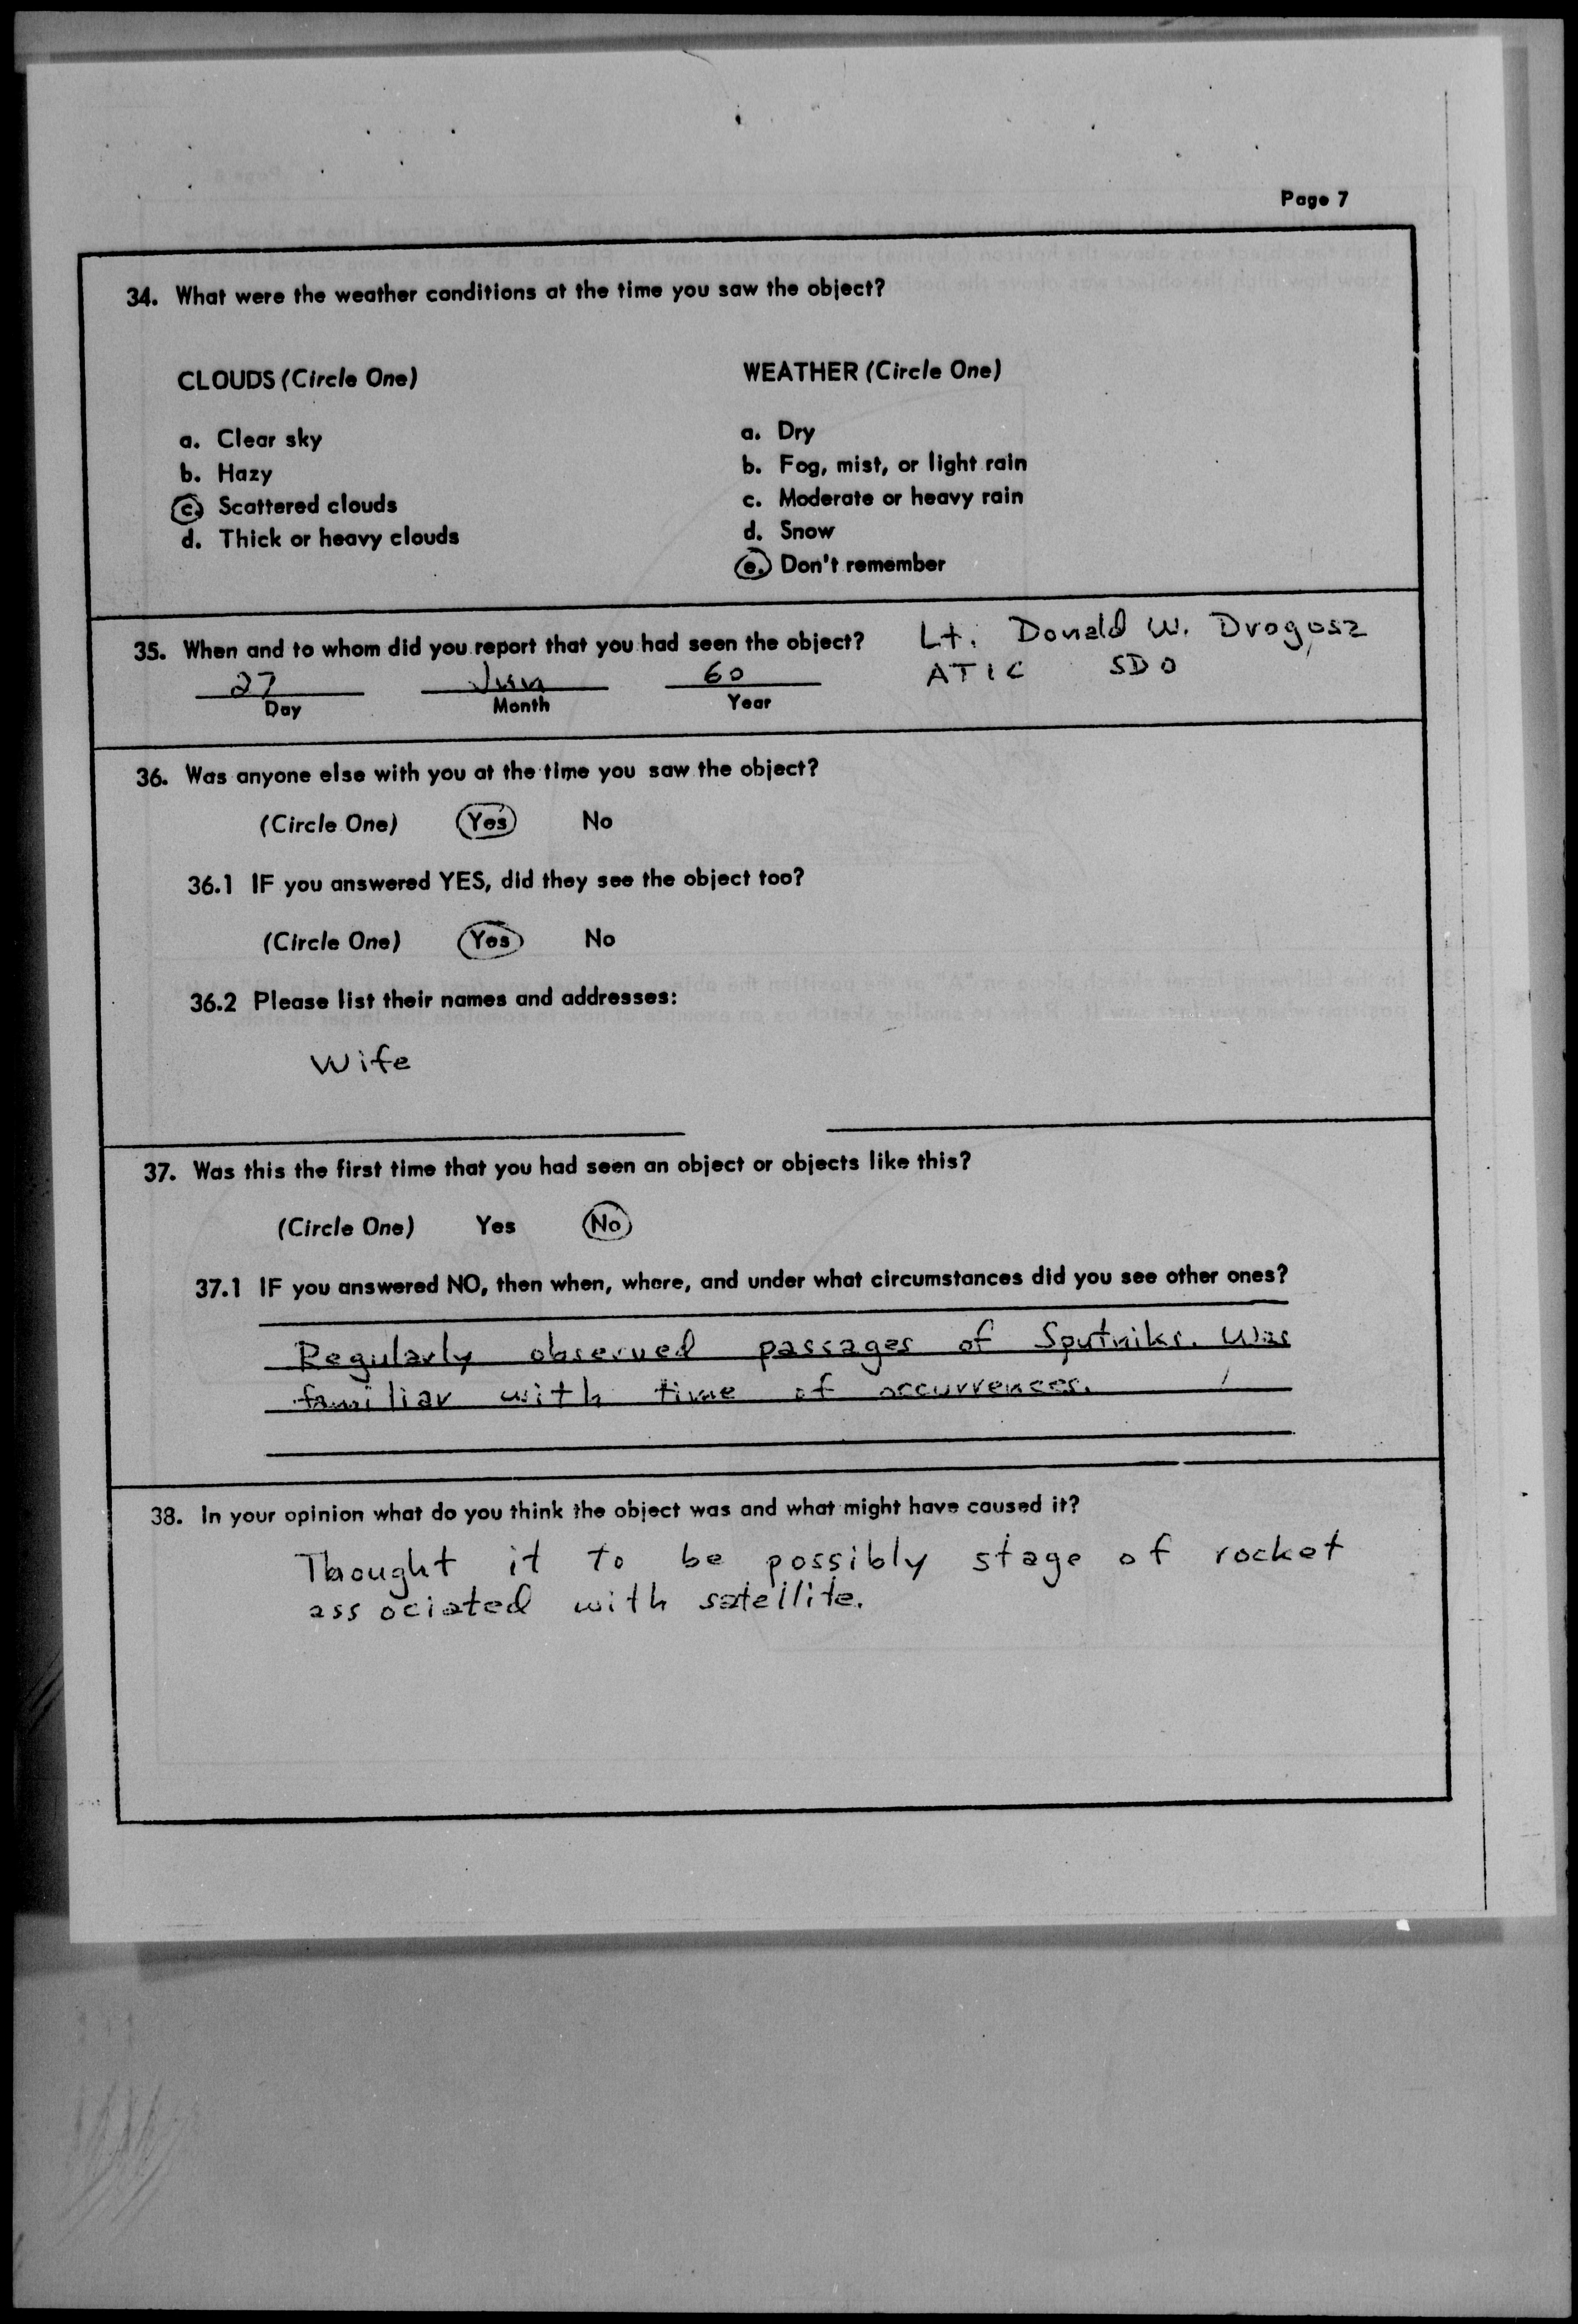 Page 7
34. What were the weather conditions at the time you saw the object?
CLOUDS (Circle One)
a. Clear sky
b. Hazy
c. Scattered clouds
d. Thick or heavy clouds
WEATHER (Circle One)
a. Dry
b. Fog, mist, or light rain
c. Moderate or heavy rain
d. Snow
e. Don't remember
35. When and to whom did you report that you had seen the object?
27 Jun 60
Day Month Year
Lt. Donald W. Drogosz
ATIC SDO
36. Was anyone else with you at the time you saw the object?
(Circle One) Yes No
36.1 IF you answered YES, did they see the object too?
(Circle One) Yes No
36.2 Please list their names and addresses:
Wife
37. Was this the first time that you had seen an object or objects like this?
(Circle One) Yes No
37.1 IF you answered NO, then when, where, and under what circumstances did you see other ones?
Regularly observed passages of Sputniks. Was
familiar with time of occurrences.
38. In your opinion what do you think the object was and what might have caused it?
Thought it to be possibly stage of rocket
associated with satellite.